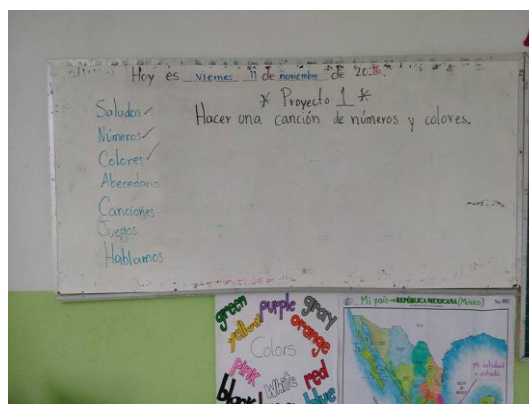 Hoy es viernes 11 de noviembre de 2016.
* Proyecto 1 *
Hacer una canción de números y colores.
Saludos ✓
Números ✓
Colores ✓
Abecedario
Canciones
Juegos
Hablamos
green
purple
gray
yellow
orange
Colors
pink
white
red
black
blue
Mi país → REPÚBLICA MEXICANA (México)
mi entidad
o estado